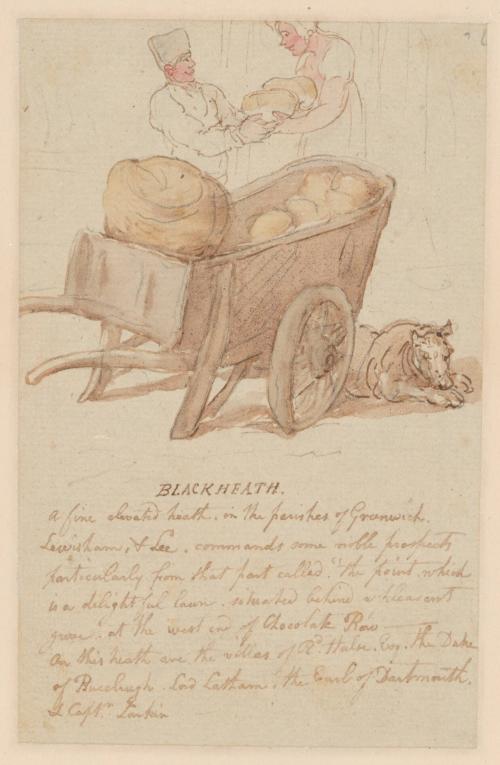 BLACKHEATH.
a fine elevated heath. in the parishes of Greenwich.
Lewisham, & Lee. commands some noble prospects
particularly from that part called. "the point. which
is a delightful lawn. situated behind a pleasant
grove. at the west end of Chocolate Row
On this heath are the villas of Rd. Hulse. Esq. the Duke
of Buccleugh. Lord Latham. the Earl of Dartmouth.
& Captn. Larkin